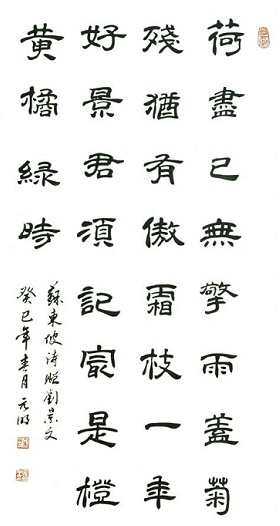 荷盡已無擎雨蓋菊
殘猶有傲霜枝一年
好景君須記最是橙
黃橘綠時
蘇東坡詩贈劉景文
癸巳年春月元